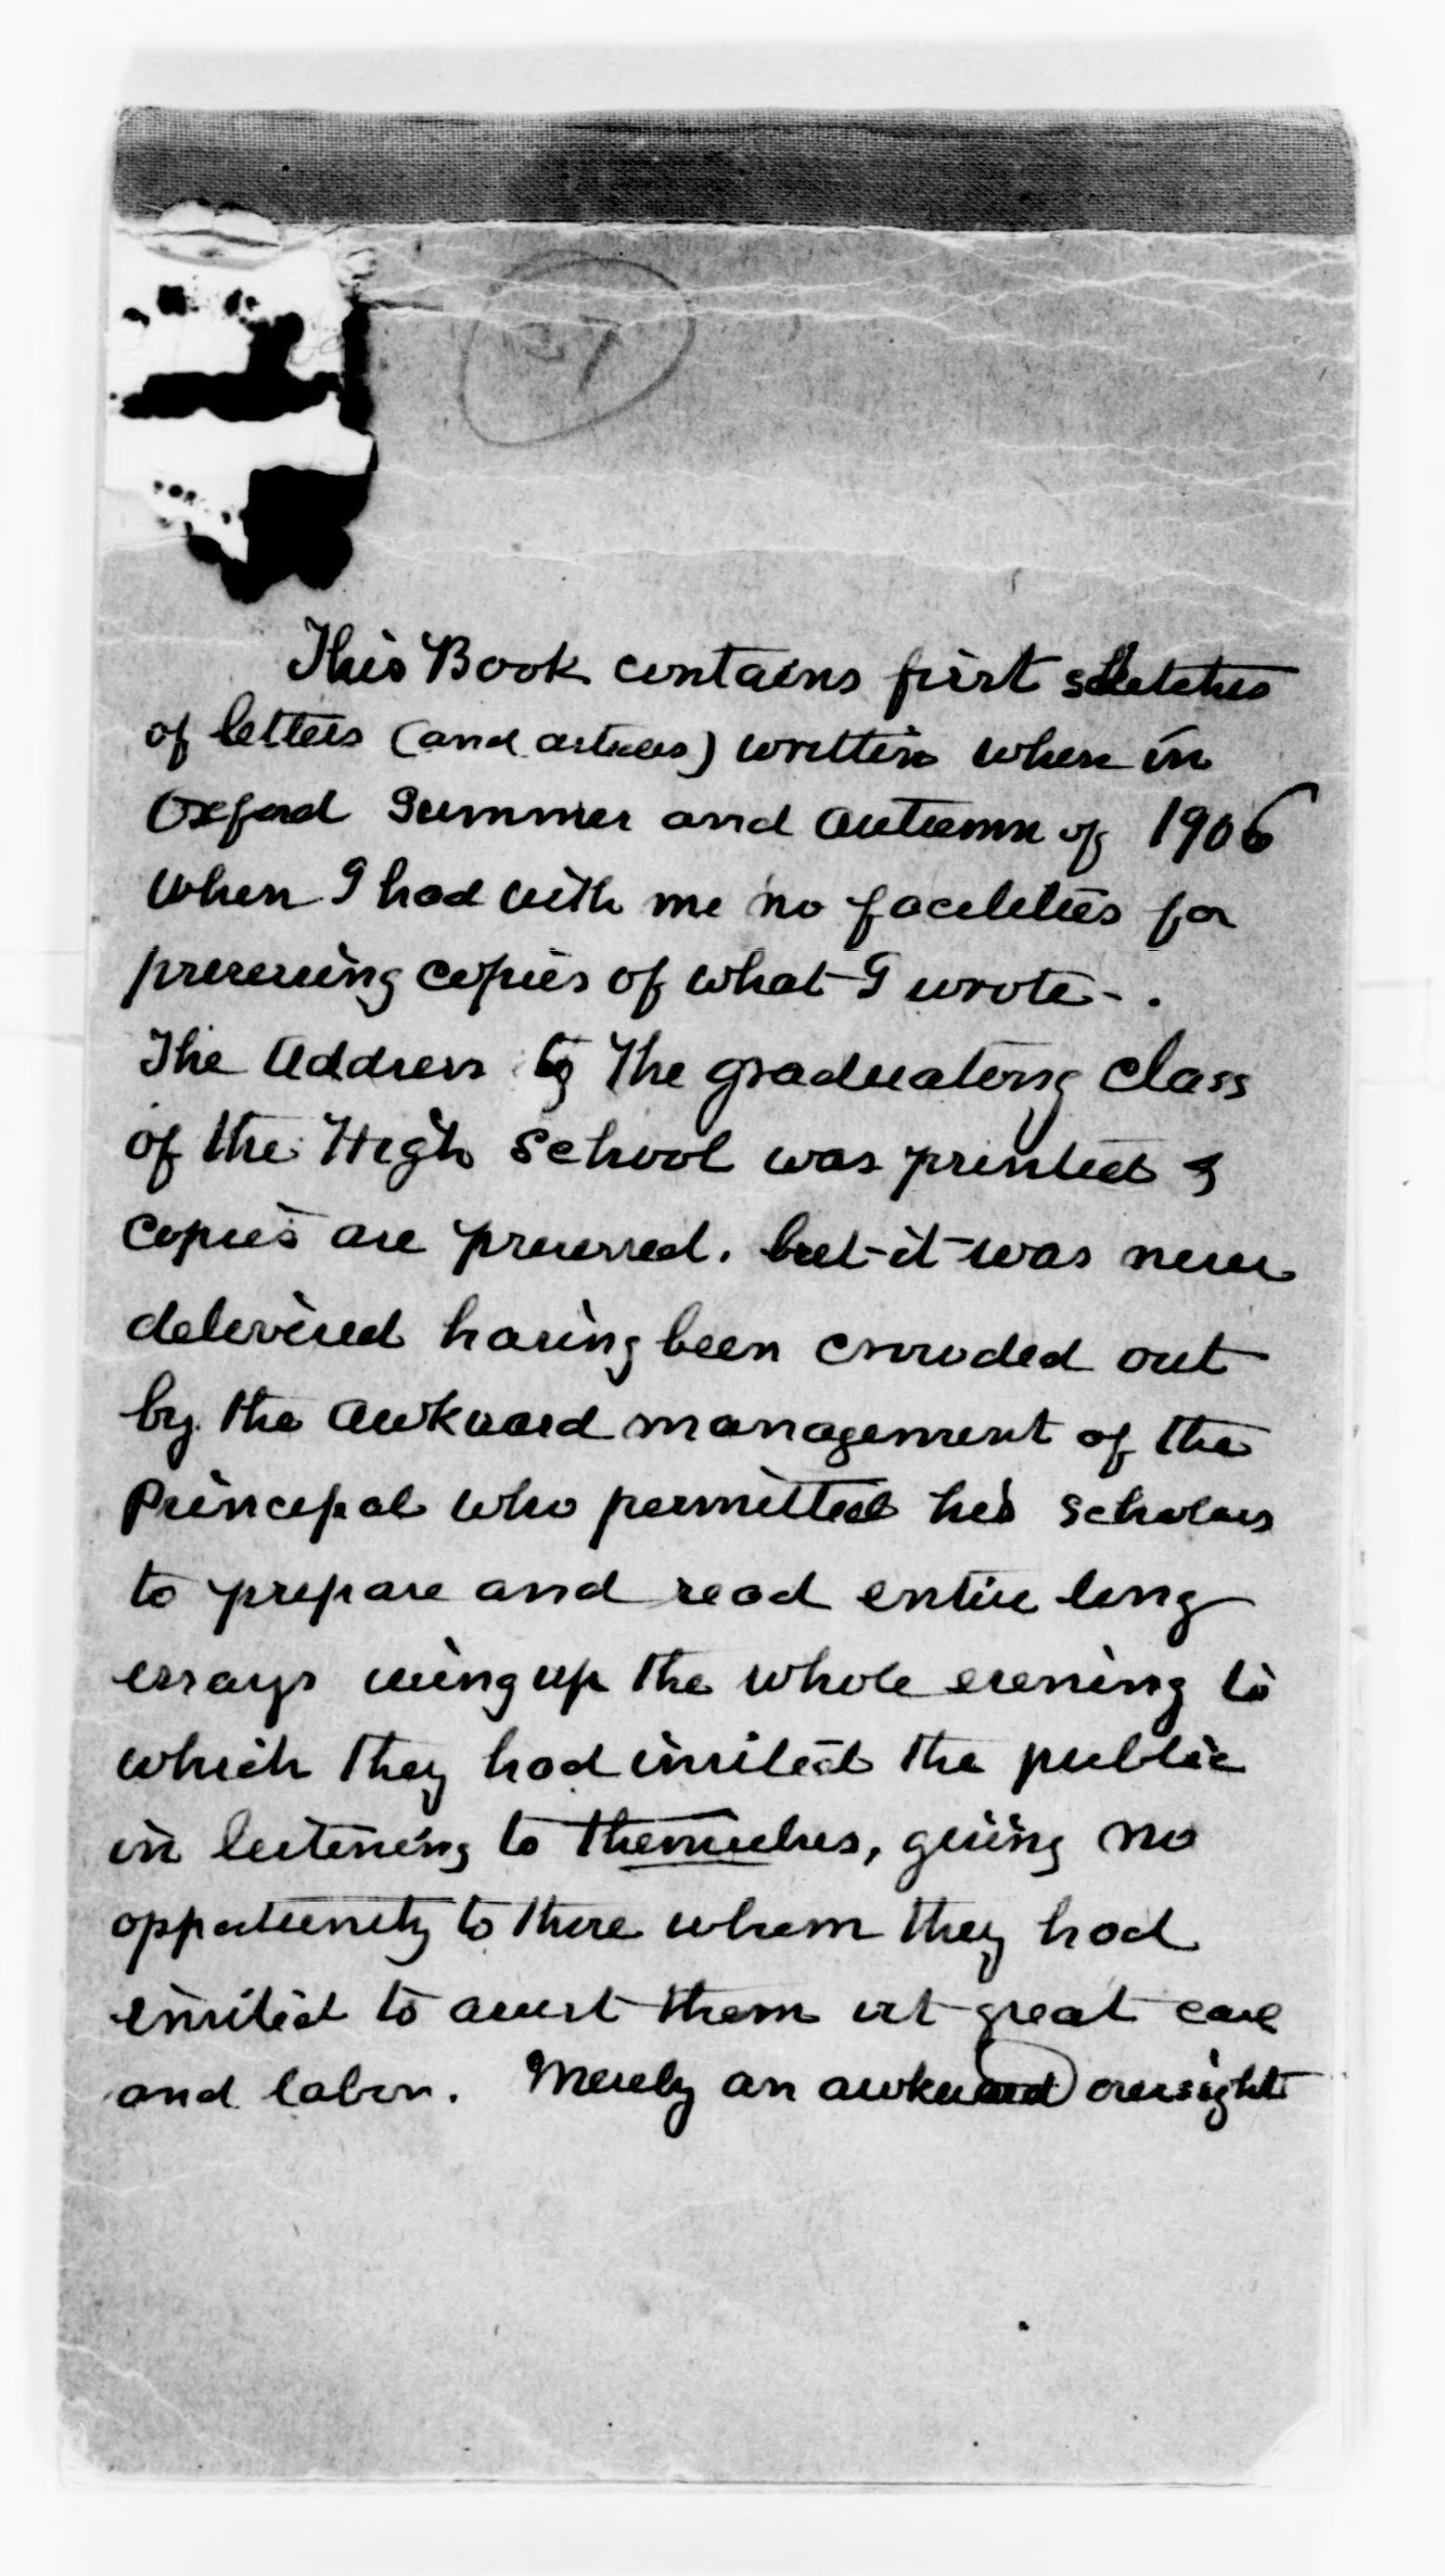 27
This Book contains first sketches
of letters (and articles) written when in
Oxford Summer and Autumn of 1906
when I had with me no facilities for
preserving copies of what I wrote - .
The Address to The graduating Class
of the High School was printed &
Copies are preserved. but it was never
delivered having been crowded out
by the awkward management of the
Principal who permitted his scholars
to prepare and read entire long
essays using up the whole evening to
which they had invited the public
in listening to themselves, giving no
opportunity to those whom they had
invited to assist them at great care
and labor. Merely an awkward oversight